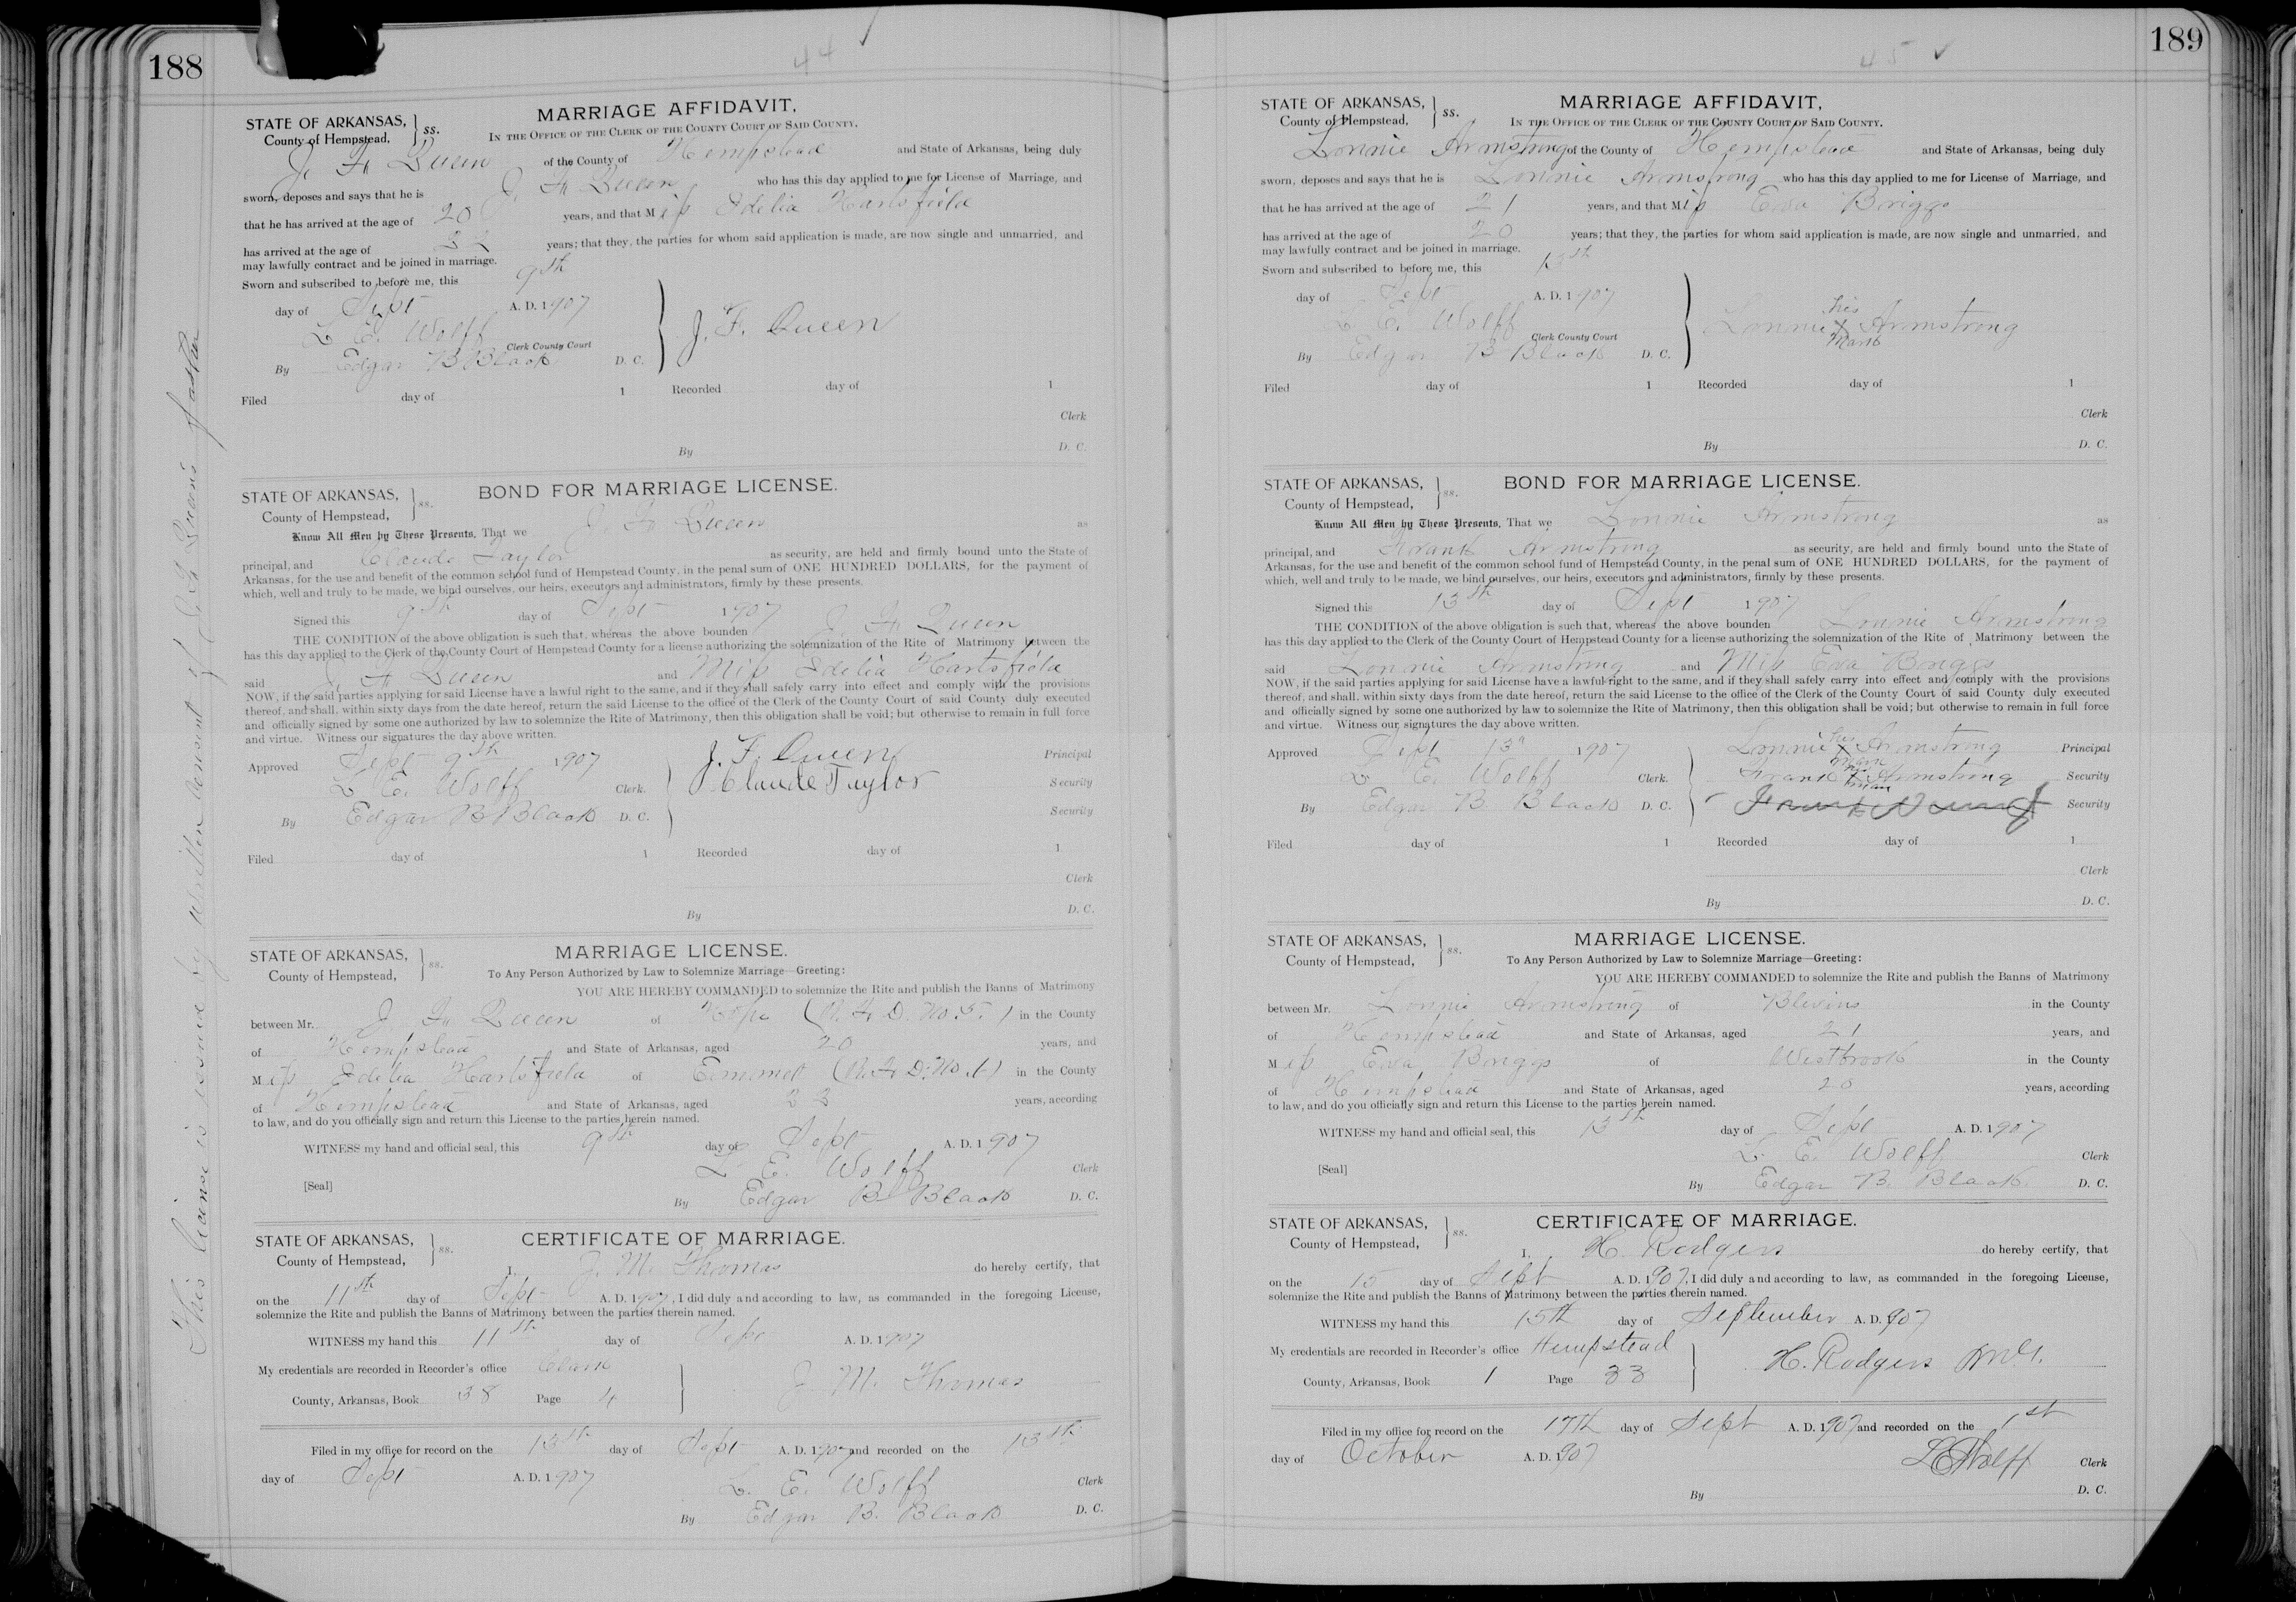 188
44 ✓
This license is issued by written consent of J. F. Queen's father
STATE OF ARKANSAS, } ss.
County of Hempstead,
MARRIAGE AFFIDAVIT,
IN THE OFFICE OF THE CLERK OF THE COUNTY COURT OF SAID COUNTY.
J. F. Queen of the County of Hempstead and State of Arkansas, being duly
sworn, deposes and says that he is J. F. Queen who has this day applied to me for License of Marriage, and
that he has arrived at the age of 20 years, and that Miss Idelia Hartsfield
has arrived at the age of years; that they, the parties for whom said application is made, are now single and unmarried, and
may lawfully contract and be joined in marriage.
Sworn and subscribed to before me, this 9th
day of Sept A. D. 1907
L. E. Wolff
Clerk County Court
By Edgar B Black D. C.
J. F. Queen
Filed day of 1 Recorded day of 1
Clerk
By D. C.
STATE OF ARKANSAS, } ss.
County of Hempstead,
BOND FOR MARRIAGE LICENSE.
Know All Men by These Presents, That we J. F. Queen as
principal, and Claude Taylor as security, are held and firmly bound unto the State of
Arkansas, for the use and benefit of the common school fund of Hempstead County, in the penal sum of ONE HUNDRED DOLLARS, for the payment of
which, well and truly to be made, we bind ourselves, our heirs, executors and administrators, firmly by these presents.
Signed this 9th day of Sept 1907
THE CONDITION of the above obligation is such that, whereas the above bounden J. F. Queen
has this day applied to the Clerk of the County Court of Hempstead County for a license authorizing the solemnization of the Rite of Matrimony between the
said J. F. Queen and Miss Idelia Hartsfield
NOW, if the said parties applying for said License have a lawful right to the same, and if they shall safely carry into effect and comply with the provisions
thereof, and shall, within sixty days from the date hereof, return the said License to the office of the Clerk of the County Court of said County duly executed
and officially signed by some one authorized by law to solemnize the Rite of Matrimony, then this obligation shall be void; but otherwise to remain in full force
and virtue. Witness our signatures the day above written.
Approved Sept 9th 1907
L. E. Wolff Clerk.
By Edgar B Black D. C.
J. F. Queen Principal
Claude Taylor Security
Security
Filed day of 1 Recorded day of 1
Clerk
By D. C.
STATE OF ARKANSAS, } ss.
County of Hempstead,
MARRIAGE LICENSE.
To Any Person Authorized by Law to Solemnize Marriage—Greeting:
YOU ARE HEREBY COMMANDED to solemnize the Rite and publish the Banns of Matrimony
between Mr. J. F. Queen of Hope (R. F. D. No. 5.) in the County
of Hempstead and State of Arkansas, aged 20 years, and
Miss Idelia Hartsfield of Emmet (R. F. D. No. 1) in the County
of Hempstead and State of Arkansas, aged years, according
to law, and do you officially sign and return this License to the parties herein named.
WITNESS my hand and official seal, this 9th day of Sept A. D. 1907
L. E. Wolff Clerk
[Seal]
By Edgar B Black D. C.
STATE OF ARKANSAS, } ss.
County of Hempstead,
CERTIFICATE OF MARRIAGE.
I, J. M. Thomas do hereby certify, that
on the 11th day of Sept A. D. 1907, I did duly and according to law, as commanded in the foregoing License,
solemnize the Rite and publish the Banns of Matrimony between the parties therein named.
WITNESS my hand this 11th day of Sept A. D. 1907
My credentials are recorded in Recorder's office Clark
County, Arkansas, Book 38 Page 4
J. M. Thomas
Filed in my office for record on the 13th day of Sept A. D. 1907 and recorded on the 13th
day of Sept A. D. 1907
L. E. Wolff Clerk
By Edgar B. Black D. C.
189
45 ✓
STATE OF ARKANSAS, } ss.
County of Hempstead,
MARRIAGE AFFIDAVIT,
IN THE OFFICE OF THE CLERK OF THE COUNTY COURT OF SAID COUNTY.
Lonnie Armstrong of the County of Hempstead and State of Arkansas, being duly
sworn, deposes and says that he is Lonnie Armstrong who has this day applied to me for License of Marriage, and
that he has arrived at the age of 21 years, and that Miss Eva Briggs
has arrived at the age of 20 years; that they, the parties for whom said application is made, are now single and unmarried, and
may lawfully contract and be joined in marriage.
Sworn and subscribed to before me, this 13th
day of Sept A. D. 1907
L. E. Wolff
Clerk County Court
By Edgar B Black D. C.
Lonnie his X mark Armstrong
Filed day of 1 Recorded day of 1
Clerk
By D. C.
STATE OF ARKANSAS, } ss.
County of Hempstead,
BOND FOR MARRIAGE LICENSE.
Know All Men by These Presents, That we Lonnie Armstrong as
principal, and Frank Armstrong as security, are held and firmly bound unto the State of
Arkansas, for the use and benefit of the common school fund of Hempstead County, in the penal sum of ONE HUNDRED DOLLARS, for the payment of
which, well and truly to be made, we bind ourselves, our heirs, executors and administrators, firmly by these presents.
Signed this 13th day of Sept 1907
THE CONDITION of the above obligation is such that, whereas the above bounden Lonnie Armstrong
has this day applied to the Clerk of the County Court of Hempstead County for a license authorizing the solemnization of the Rite of Matrimony between the
said Lonnie Armstrong and Miss Eva Briggs
NOW, if the said parties applying for said License have a lawful right to the same, and if they shall safely carry into effect and comply with the provisions
thereof, and shall, within sixty days from the date hereof, return the said License to the office of the Clerk of the County Court of said County duly executed
and officially signed by some one authorized by law to solemnize the Rite of Matrimony, then this obligation shall be void; but otherwise to remain in full force
and virtue. Witness our signatures the day above written.
Approved Sept 13" 1907
L. E. Wolff Clerk.
By Edgar B Black D. C.
Lonnie his X mark Armstrong Principal
Frank his X mark Armstrong Security
Security
Filed day of 1 Recorded day of 1
Clerk
By D. C.
STATE OF ARKANSAS, } ss.
County of Hempstead,
MARRIAGE LICENSE.
To Any Person Authorized by Law to Solemnize Marriage—Greeting:
YOU ARE HEREBY COMMANDED to solemnize the Rite and publish the Banns of Matrimony
between Mr. Lonnie Armstrong of Blevins in the County
of Hempstead and State of Arkansas, aged 21 years, and
Miss Eva Briggs of Westbrook in the County
of Hempstead and State of Arkansas, aged 20 years, according
to law, and do you officially sign and return this License to the parties herein named.
WITNESS my hand and official seal, this 13th day of Sept A. D. 1907
L. E. Wolff Clerk
[Seal]
By Edgar B. Black D. C.
STATE OF ARKANSAS, } ss.
County of Hempstead,
CERTIFICATE OF MARRIAGE.
I, H. Rodgers do hereby certify, that
on the 15 day of Sept A. D. 1907, I did duly and according to law, as commanded in the foregoing License,
solemnize the Rite and publish the Banns of Matrimony between the parties therein named.
WITNESS my hand this 15th day of September A. D. 1907
My credentials are recorded in Recorder's office Hempstead
County, Arkansas, Book 1 Page 33
H. Rodgers
Filed in my office for record on the 17th day of Sept A. D. 1907 and recorded on the 1st
day of October A. D. 1907
L E Wolff Clerk
By D. C.